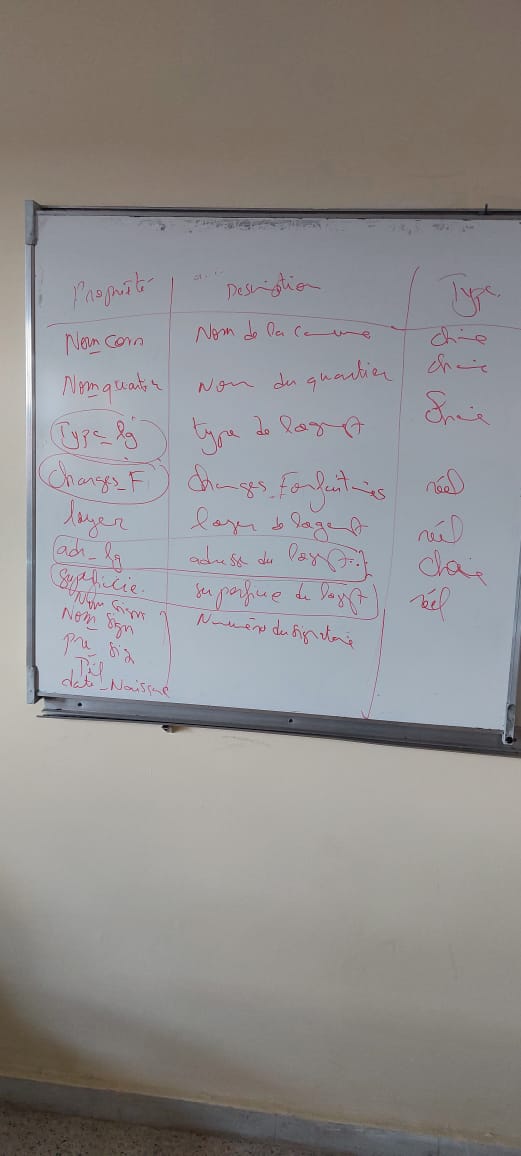 Propriété Description Type
Nom_com Nom de la commune chaine
Nom_quartier Nom du quartier chaine
Type_lg type de logent chaine
charges_F charges_Forfaitaires réel
loyer loyer de logent réel
adr_lg adresse du chaine
superficie. superficie du réel
Nom_sign Numéro du signataire
pre_sig
Tél
date_Naissance